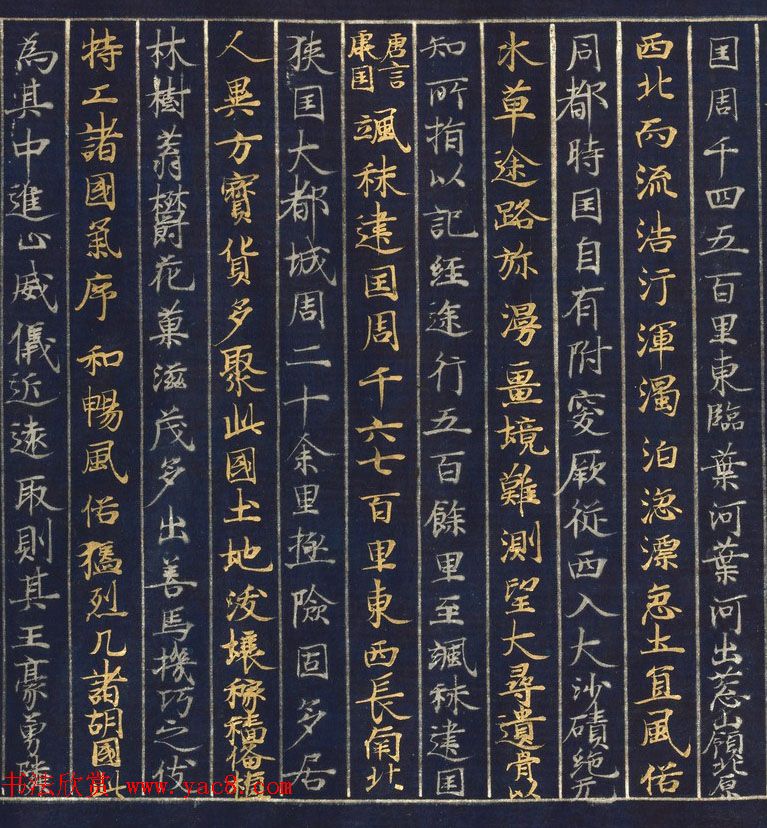 国周千四五百里東臨葉河葉河出葱山嶺北原
西北而流浩汗渾濁泊淴漂急土宜風俗
同都時国自有附窔厥従西入大沙磧絶无
水草途路弥漫畺境難測望大尋遺骨以
知所指以記経途行五百餘里至颯秣建国
唐言康国颯秣建国周千六七百里東西長南北
狭国大都城周二十余里極險固多居
人異方寳貨多聚此國土地浚壤稼穑俻植
林樹蓊欝花菓滋茂多出善馬機巧之伎
特工諸國氣序和暢風俗猛烈凡諸胡國此
為其中進止威儀近遠取則其王豪勇隣
书法欣赏 www.yac8.com